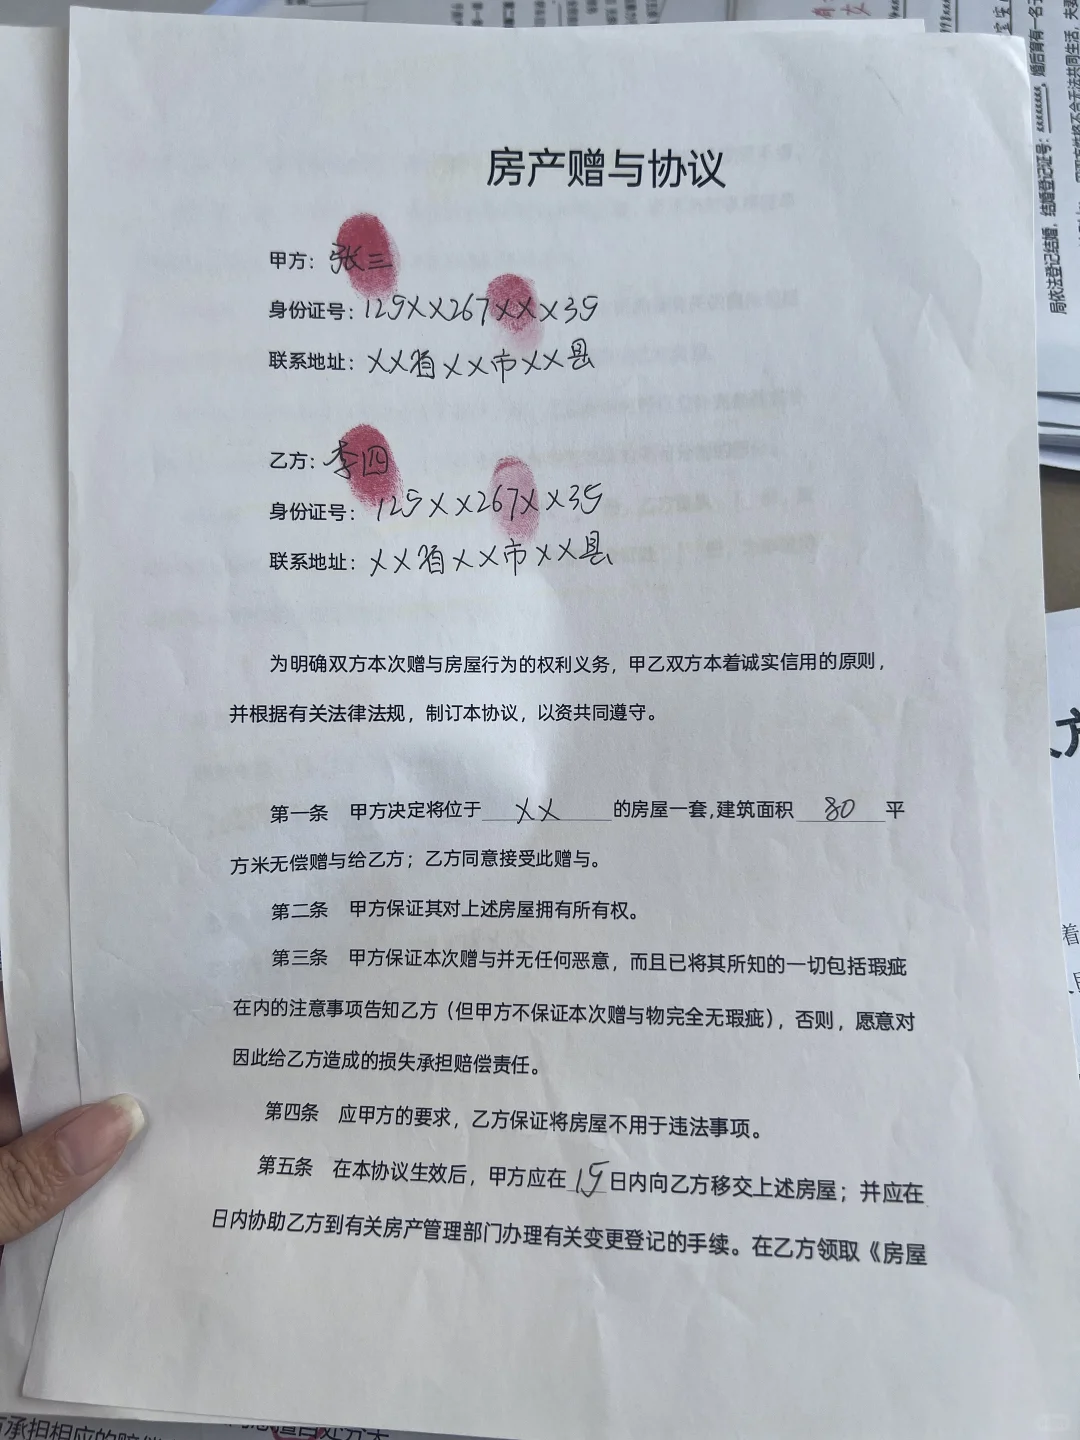 房产赠与协议
甲方：张三
身份证号：125XX267XXX35
联系地址：XX省XX市XX县
乙方：李四
身份证号：125XX267XX35
联系地址：XX省XX市XX县
为明确双方本次赠与房屋行为的权利义务，甲乙双方本着诚实信用的原则，
并根据有关法律法规，制订本协议，以资共同遵守。
第一条 甲方决定将位于 XX 的房屋一套,建筑面积 80 平
方米无偿赠与给乙方；乙方同意接受此赠与。
第二条 甲方保证其对上述房屋拥有所有权。
第三条 甲方保证本次赠与并无任何恶意，而且已将其所知的一切包括瑕疵
在内的注意事项告知乙方（但甲方不保证本次赠与物完全无瑕疵），否则，愿意对
因此给乙方造成的损失承担赔偿责任。
第四条 应甲方的要求，乙方保证将房屋不用于违法事项。
第五条 在本协议生效后，甲方应在 15 日内向乙方移交上述房屋；并应在
日内协助乙方到有关房产管理部门办理有关变更登记的手续。在乙方领取《房屋
局依法登记结婚，结婚登记证号：xxxxxxxxx，婚后育有一名子
承担相应的赔偿